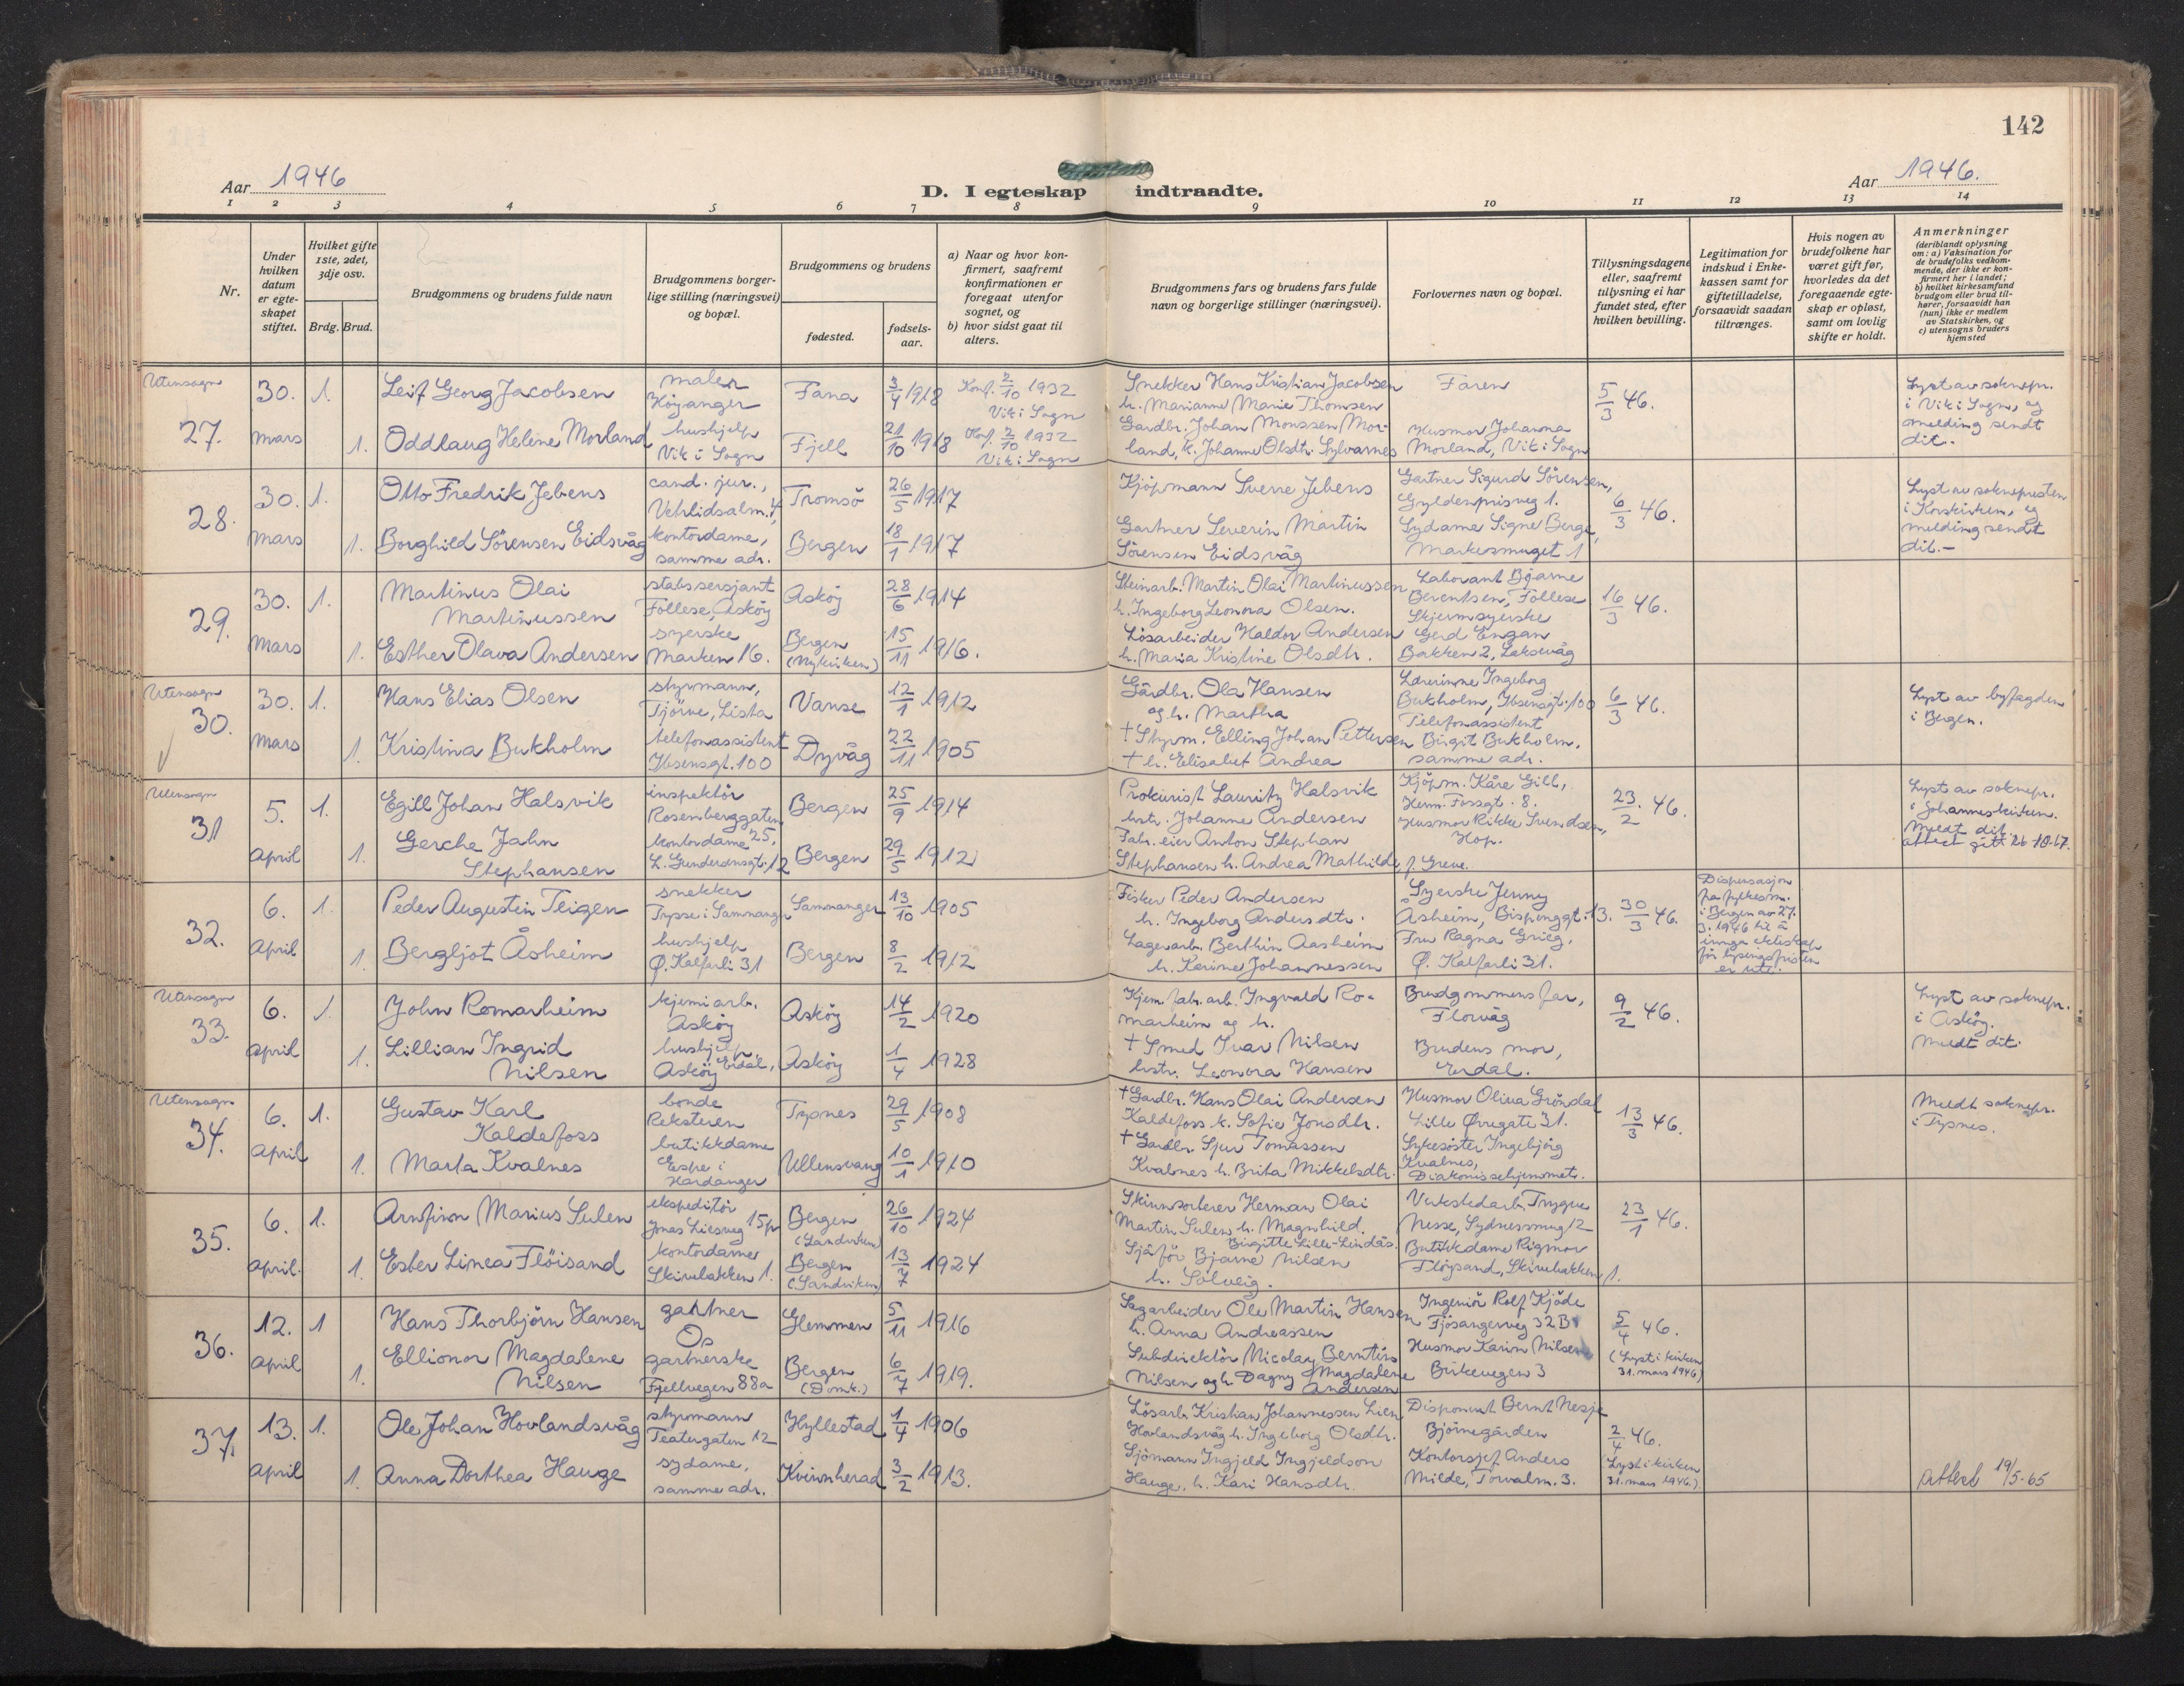 142
Aar 1946
D. I egteskap indtraadte.
Aar 1946.
1 2 3 4 5 6 7 8 9 10 11 12 13 14
Nr.
Under hvilken datum er egteskapet stiftet.
Hvilket gifte 1ste, 2det, 3dje osv.
Brdg. Brud.
Brudgommens og brudens fulde navn
Brudgommens borgerlige stilling (næringsvei) og bopæl.
Brudgommens og brudens
fødested.
fødselsaar.
a) Naar og hvor konfirmert, saafremt konfirmationen er foregaat utenfor sognet, og
b) hvor sidst gaat til alters.
Brudgommens fars og brudens fars fulde navn og borgerlige stillinger (næringsvei).
Forlovernes navn og bopæl.
Tillysningsdagene eller, saafremt tillysning ei har fundet sted, efter hvilken bevilling.
Legitimation for indskud i Enkekassen samt for giftetilladelse, forsaavidt saadan tiltrænges.
Hvis nogen av brudefolkene har været gift før, hvorledes da det foregaaende egteskap er opløst, samt om lovlig skifte er holdt.
Anmerkninger
(deriblandt oplysning om: a) Vaksination for de brudefolks vedkommende, der ikke er konfirmert her i landet; b) hvilket kirkesamfund brudgom eller brud tilhører, forsaavidt han (hun) ikke er medlem av Statskirken, og c) utensogns bruders hjemsted
Utensogns
27.
30. mars
1.
Leif Georg Jacobsen
maler
Höyanger
Fana
3/4 1918
Konf. 2/10 1932
Vik i Sogn
Snekker Hans Kristian Jacobsen
h. Marianne Marie Thomsen
Faren
5/3 46.
Lyst av soknepr.
i Vik i Sogn, og
melding sendt
dit.
1.
Oddlaug Helene Morland
hushjelp
Vik i Sogn
Fjell
21/10 1918
Konf. 2/10 1932
Vik i Sogn
Gardbr. Johan Monssen Mor-
land, h. Johanne Olsdtr. Sylvarnes
Husmor Johanna
Morland, Vik i Sogn
28.
30. mars
1.
Otto Fredrik Jebens
cand. jur.,
Vetrlidsalm. 4,
Tromsö
26/5 1917
Kjöpmann Sverre Jebens
Gartner Sigurd Sörensen,
Gyldenprisveg 1.
6/3 46.
Lyst av soknepresten
i Korskirken, og
melding sendt
dit.-
1.
Borghild Sörensen Eidsvåg
kontordame,
samme adr.
Bergen
18/1 1917
Gartner Severin Martin
Sörensen Eidsvåg
Sydame Signe Berge,
Markesmuget 1
29.
30. Mars
1.
Martinus Olai
Martinussen
stabssersjant
Föllese, Asköy
Asköy
28/6 1914
Steinarb. Martin Olai Martinussen
h. Ingeborg Leonora Olsen.
Laborant Bjarne
Berentsen, Föllese
16/3 46.
1.
Esther Olava Andersen
syerske
Marken 16.
Bergen
(Nykirken)
15/11 1916.
Lösarbeider Haldor Andersen
h. Maria Kristine Olsdtr.
Skjermsyerske
Gerd Engan
Bakken 2, Laksevåg
Utensogns
30.
30. Mars
1.
Hans Elias Olsen
styrmann,
Tjörve, Lista
Vanse
12/1 1912
Gårdbr. Ola Hansen
og h. Martha
Lærerinne Ingeborg
Bukholm, Ibsensgt. 100
6/3 46.
Lyst av byfogden
i Bergen.
1.
Kristina Bukholm
telefonassistent
Ibsensgt. 100
Dyvåg
22/11 1905
+ Styrm. Elling Johan Pettersen
+ h. Elisabet Andrea
Telefonassistent
Birgit Bukholm,
samme adr.
Utensogns
31
5. April
1.
Egill Johan Halsvik
inspektör
Rosenberggaten 25,
Bergen
25/9 1914
Prokurist Lauritz Halsvik
hstr. Johanne Andersen
Kjöpm. Kåre Gill,
Herm. Fossgt. 8.
23/2 46.
Lyst av soknepr.
i Johanneskirken.
Meldt dit.
attest gitt 26-10-67.
1.
Gerche Jahn
Stephansen
kontordame
Bergen
29/5 1912
Fabr. eier Anton Stephan
Stephansen h. Andrea Mathilde f. Greve.
Husmor Rikke Svendsen,
Hop.
32.
6. April
1.
Peder Augustin Teigen
snekker
Trysse i Samnanger
Samnanger
13/10 1905
Fisker Peder Andersen
h. Ingeborg Andersdtr.
Syerske Jenny
Åsheim, Bispenggt. 13.
30/3 46.
Dispensasjon
fra fylkesm.
i Bergen av 27.
3. 1946 til å
inngå ekteskap
før lysingsfristen
er ute.
1.
Bergljot Åsheim
hushjelp
Ø. Kalfarli 31
Bergen
8/2 1912
Lagerarb. Berthin Aasheim
h. Karine Johannessen
Fru Ragna Grieg,
Ø. Kalfarli 31.
Utensogns
33.
6. april
1.
John Romarheim
kjemiarb.
Asköy
Asköy
14/2 1920
Kjem. fabr. arb. Ingvald Ro-
marheim og h.
Brudgommens far,
Florvåg
9/2 46.
Lyst av soknepr.
i Asköy.
Meldt dit.
1.
Lillian Ingrid
Nilsen
hushjelp,
Asköy Erdal,
Asköy
1/4 1928
+ Smed Ivar Nilsen
hstr. Leonora Hansen
Brudens mor,
Erdal.
Utensogns
34.
6. April
1.
Gustav Karl
Kaldefoss
bonde
Reksteren
Tysnes
29/5 1908
+ Gardbr. Hans Olai Andersen
Kaldefoss h. Sofie Jonsdtr.
Husmor Oliva Gröndal
Lille Øvregate 31.
13/3 46.
Meldt soknepr.
i Tysnes.
1.
Marta Kvalnes
butikkdame
Espe i
Hardanger
Ullensvang
10/1 1910
+ Gardbr. Sjur Tomassen
Kvalnes h. Brita Mikkelsdtr.
Sykesöster Ingebjörg
Kvalnes,
Diakonissehjemmet.
35.
6. April.
1.
Arnfinn Marius Sulen
ekspeditör
Jonas Liesveg 15 p
Bergen
(Sandviken)
26/10 1924
Skinnsorterer Herman Olai
Martin Sulen h. Magnhild.
Birgitte Lille-Lindås.
Verkstedarb. Trygve
Nesse, Sydnessmug 12
23/1 46.
1.
Ester Linea Flöisand
kontordame
Skivebakken 1.
Bergen
(Sandviken)
13/7 1924
Sjåför Bjarne Nilsen
h. Solveig.
Butikkdame Rigmor
Flöysand, Skivebakken 1.
36.
12. April
1
Hans Thorbjörn Hansen
gartner
Os
Glemmen
5/11 1916
Sagarbeider Ole Martin Hansen
h. Anna Andreassen
Ingeniör Rolf Kjöde
Fjösangerveg 32B
5/4 46.
(Lyst i kirken
31. mars 1946)
1.
Ellionor Magdalene
Nilsen
gartnerske
Fjellvegen 88a
Bergen
(Domk.)
6/7 1919.
Subdirektör Nicolay Berntins
Nilsen og h. Dagny Magdalene
Andersen
Husmor Karin Nilsen
Birkevegen 3
37.
13. April
1.
Ole Johan Hovlandsvåg
styrmann
Teatergaten 12
Hyllestad
1/4 1906
Lösarb. Kristian Johannessen Lien
Hovlandsvåg h. Ingeborg Olsdtr.
Disponent Bernt Nesje
Björnegården
2/4 46.
(Lyst i kirken
31. mars 1946.)
1.
Anna Dorthea Hauge
sydame,
samme adr.
Kvinnherad
3/2 1913.
Sjömann Ingjeld Ingjeldson
Hauge, h. Kari Hansdtr.
Kontorsjef Anders
Milde, Torvalm. 3.
Attest 19/5-65